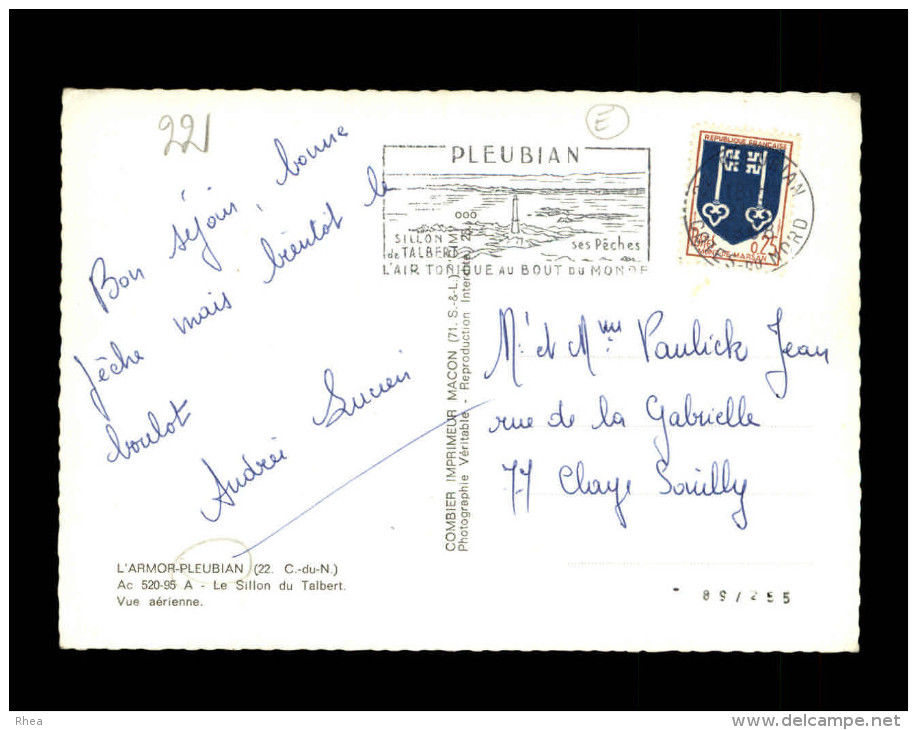 221
E
Bon séjour, bonne
pêche mais bientôt le
boulot
Andrée Lucien
PLEUBIAN
SILLON
de TALBERT
ses Pêches
L'AIR TONIQUE AU BOUT DU MONDE
REPUBLIQUE FRANÇAISE
0,25
MONT-DE-MARSAN
COTES-DU-NORD
M. et Mme Paulick Jean
rue de la Gabrielle
77 Claye Souilly
COMBIER IMPRIMEUR MACON (71. S.-&-L.) "CIM"
Photographie Véritable - Reproduction Interdite
L'ARMOR-PLEUBIAN (22. C.-du-N.)
Ac 520-95 A - Le Sillon du Talbert.
Vue aérienne.
89/255
Rhea
www.delcampe.net